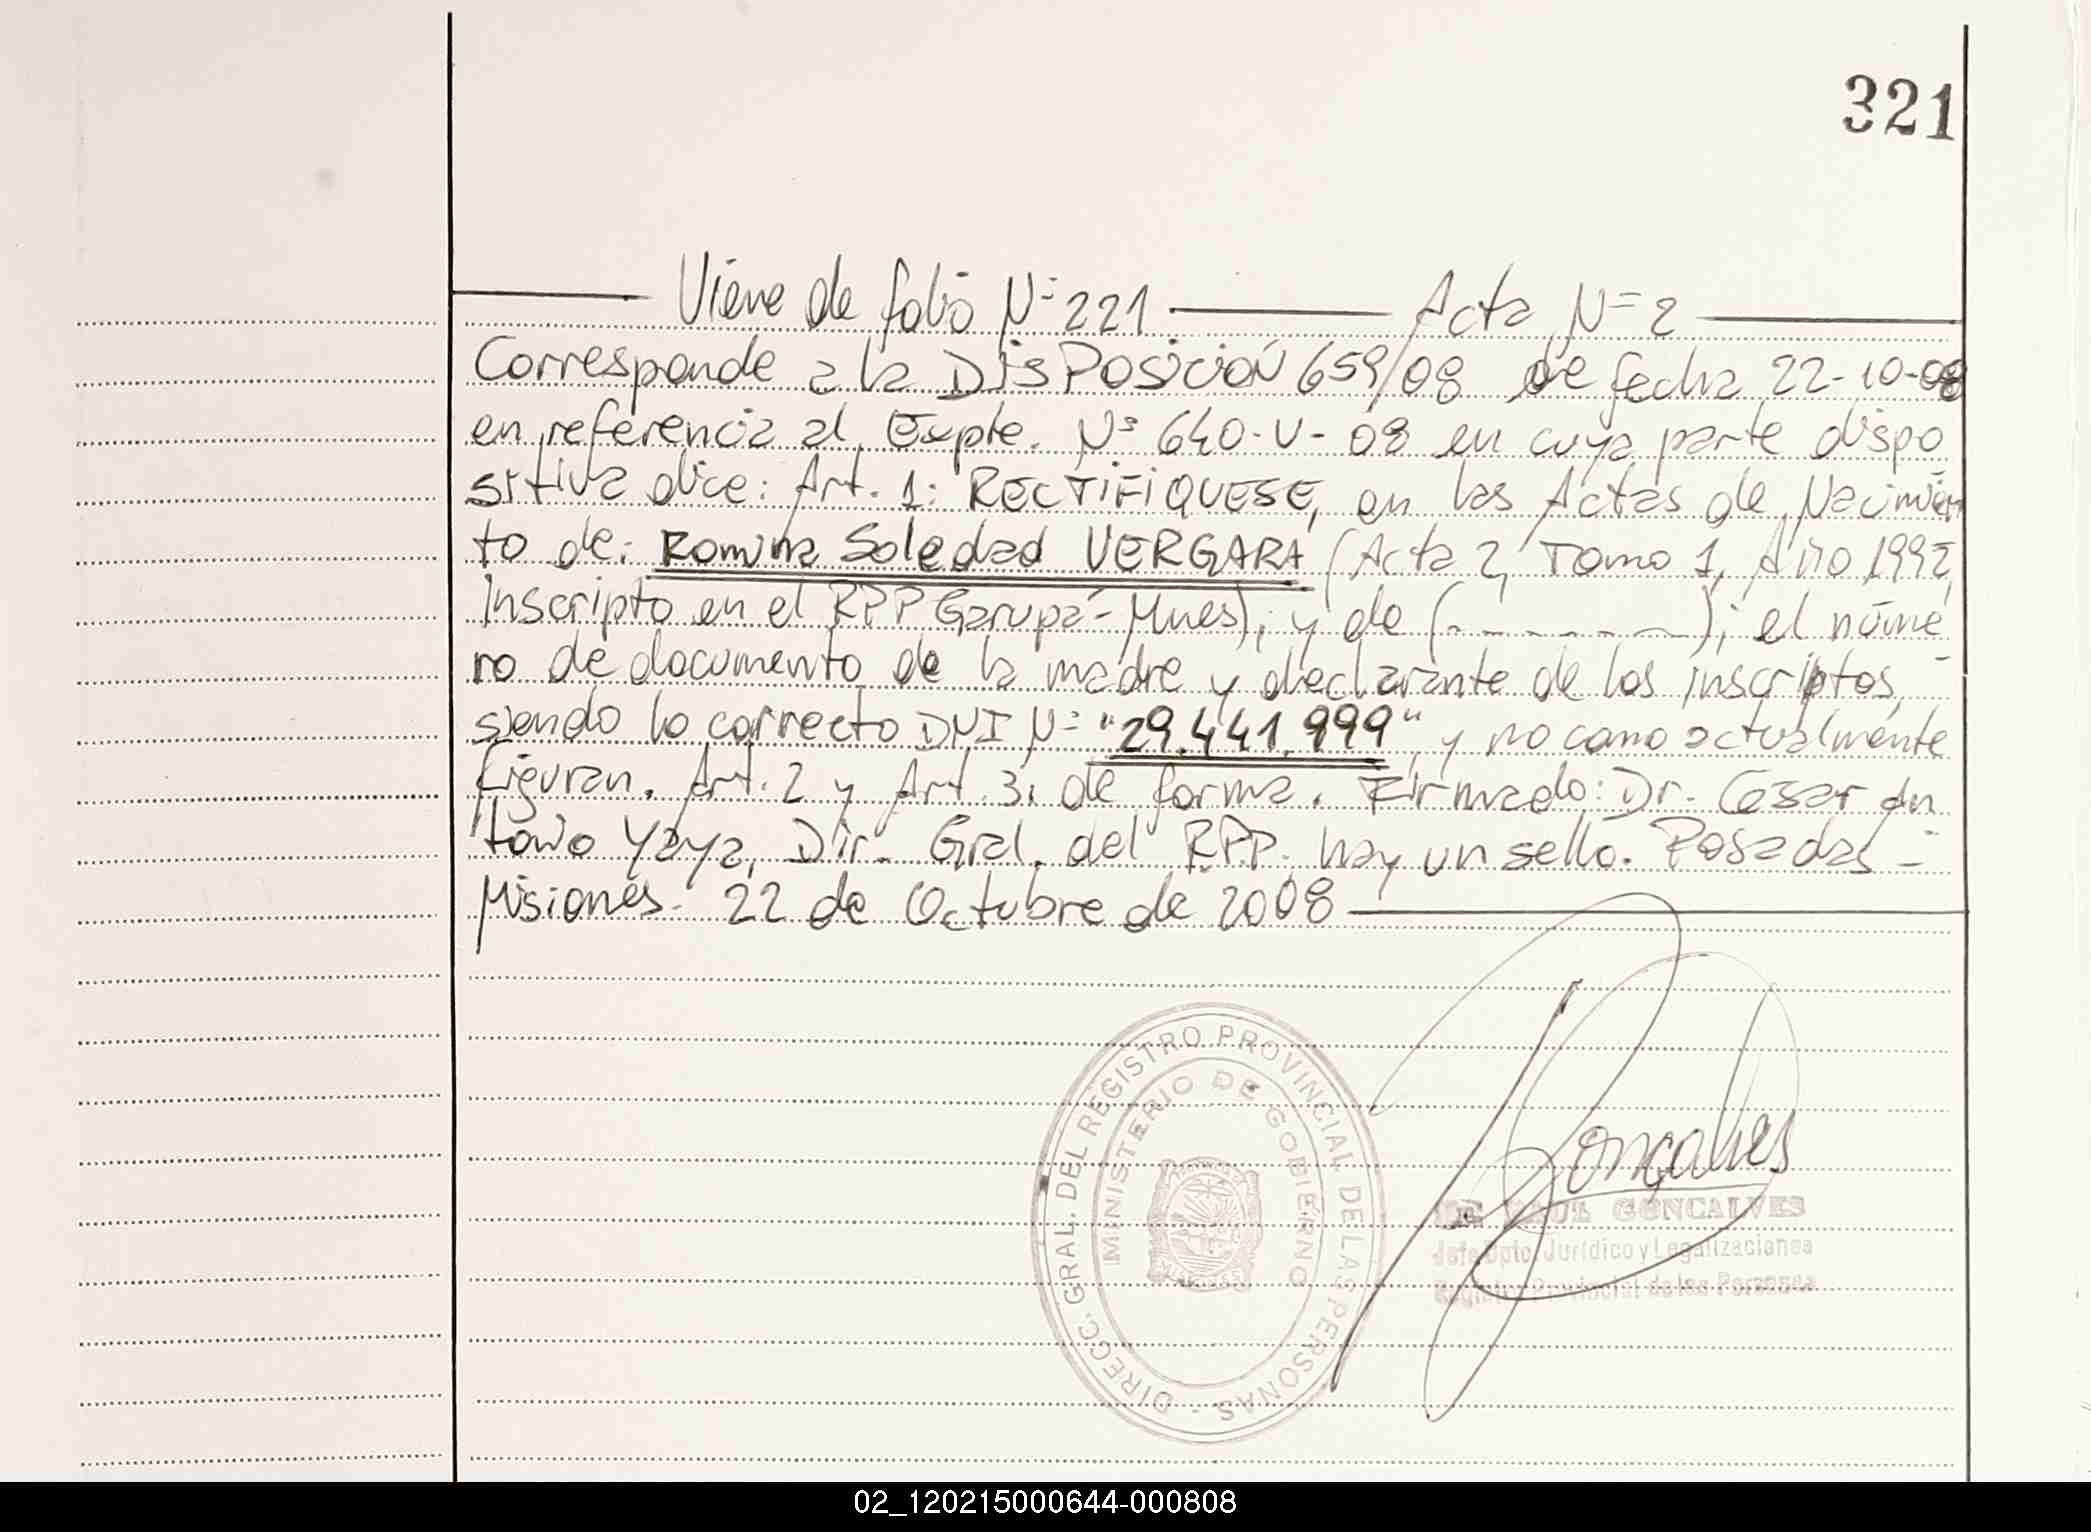 321
Viene de folio Nº 221 Acta Nº 2
Corresponde a la DISPOSICIÓN 659/08 de fecha 22-10-08
en referencia al Expte. Nº 640-V-08 en cuya parte dispo
sitiva dice: Art. 1: RECTIFIQUESE, en las Actas de Nacimien
to de: Romina Soledad VERGARA (Acta 2, Tomo 1, Año 1992,
Inscripto en el RPP Garupá-Mnes), y de (- - - - - - -); el núme
ro de documento de la madre y declarante de los inscriptos,
siendo lo correcto DNI Nº "29.441.999", y no como actualmente
figuran. Art. 2 y Art. 3: de forma. Firmado: Dr. Cesar An
tonio Yaya, Dir. Gral. del R.P.P. hay un sello. Posadas -
Misiones- 22 de Octubre de 2008
DIRECC. GRAL. DEL REGISTRO PROVINCIAL DE LAS PERSONAS -
MINISTERIO DE GOBIERNO
Gonçalves
RAUL GONCALVES
Jefe Dpto. Jurídico y Legalizaciones
Registro Provincial de las Personas
02_120215000644-000808